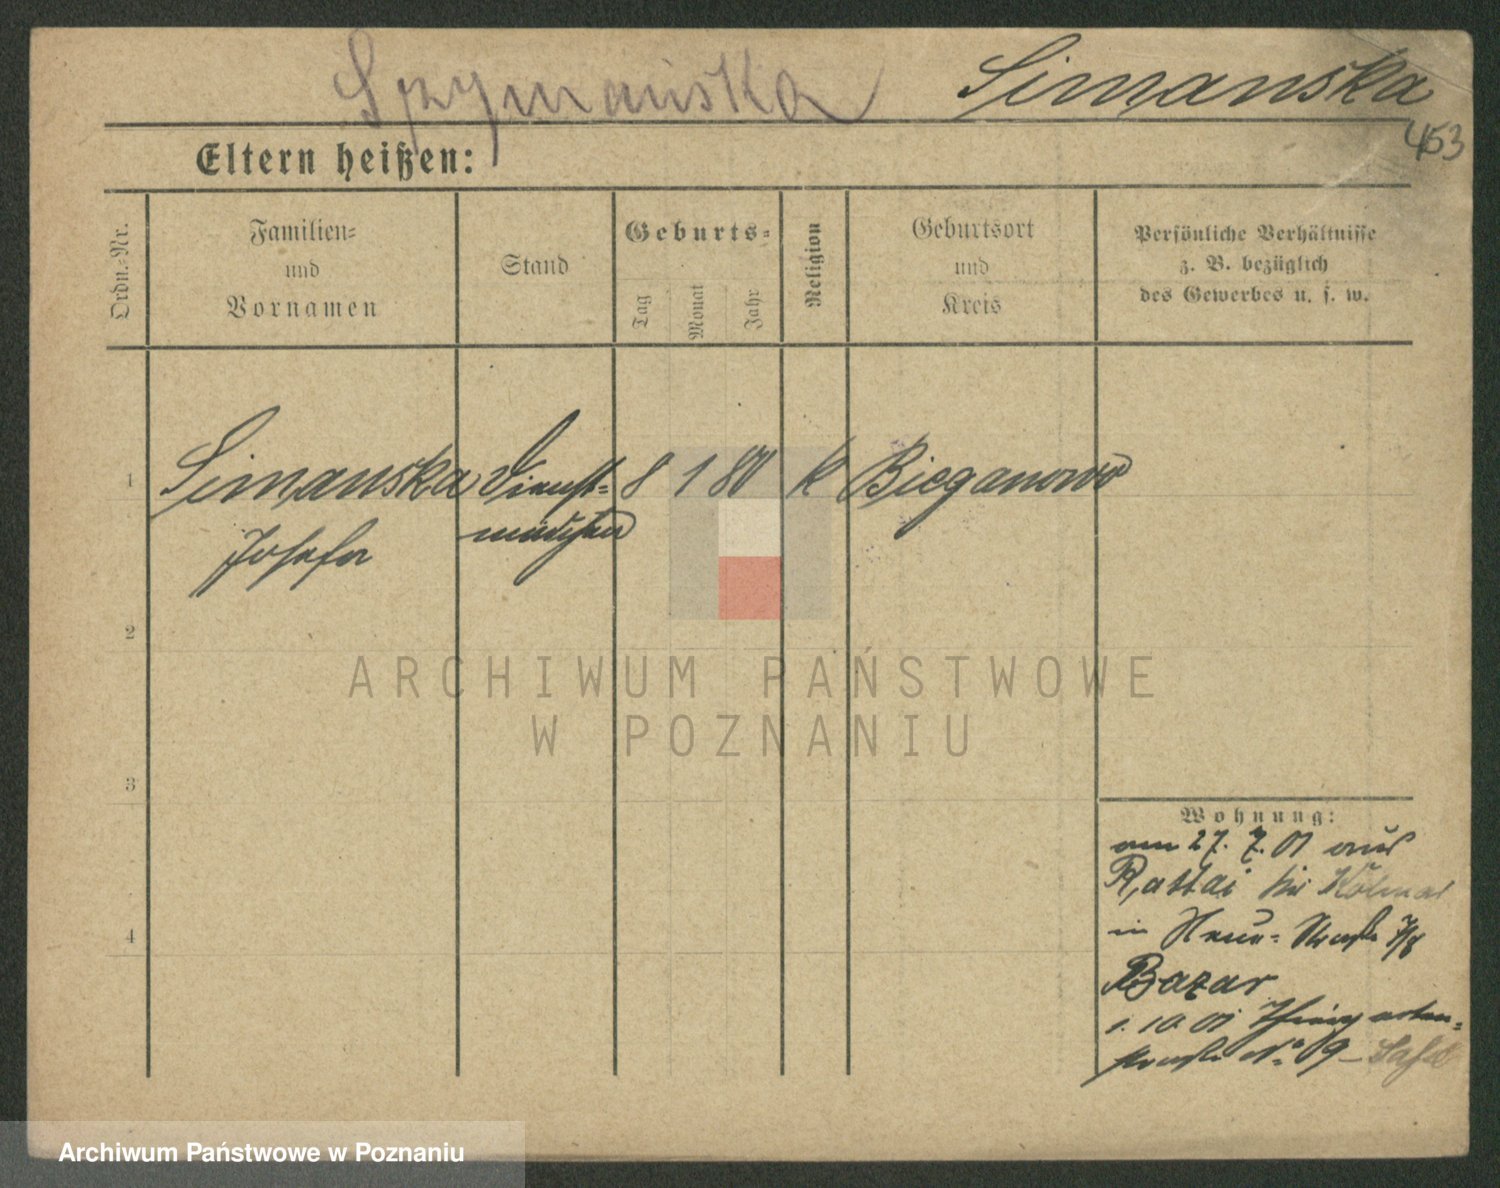 Szymańska Simanska
453
Eltern heißen:
Ordn.-Nr.
Familien-
und
Vornamen
Stand
Geburts-
Tag
Monat
Jahr
Religion
Geburtsort
und
Kreis
Persönliche Verhältnisse
z. B. bezüglich
des Gewerbes u. s. w.
1 Simanska Dienst- 8 1 80 k Bieganowo
Josefa mädchen
2
3
4
Wohnung:
am 27. 7. 01 aus
Rattai
in Neue-Straße 7/8
Bazar
1. 10 01
straße No 9
ARCHIWUM PAŃSTWOWE
W POZNANIU
Archiwum Państwowe w Poznaniu